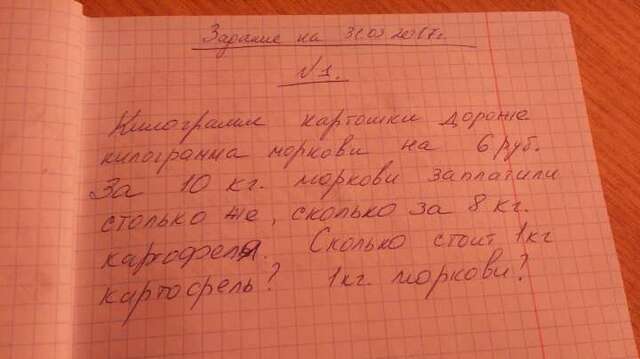 Задание на 31.03 2017г.
№1.
Килограмм картошки дороже
килограмма моркови на 6 руб.
За 10 кг. моркови заплатили
столько же, сколько за 8 кг.
картофеля. Сколько стоит 1кг
картофель? 1кг. моркови?